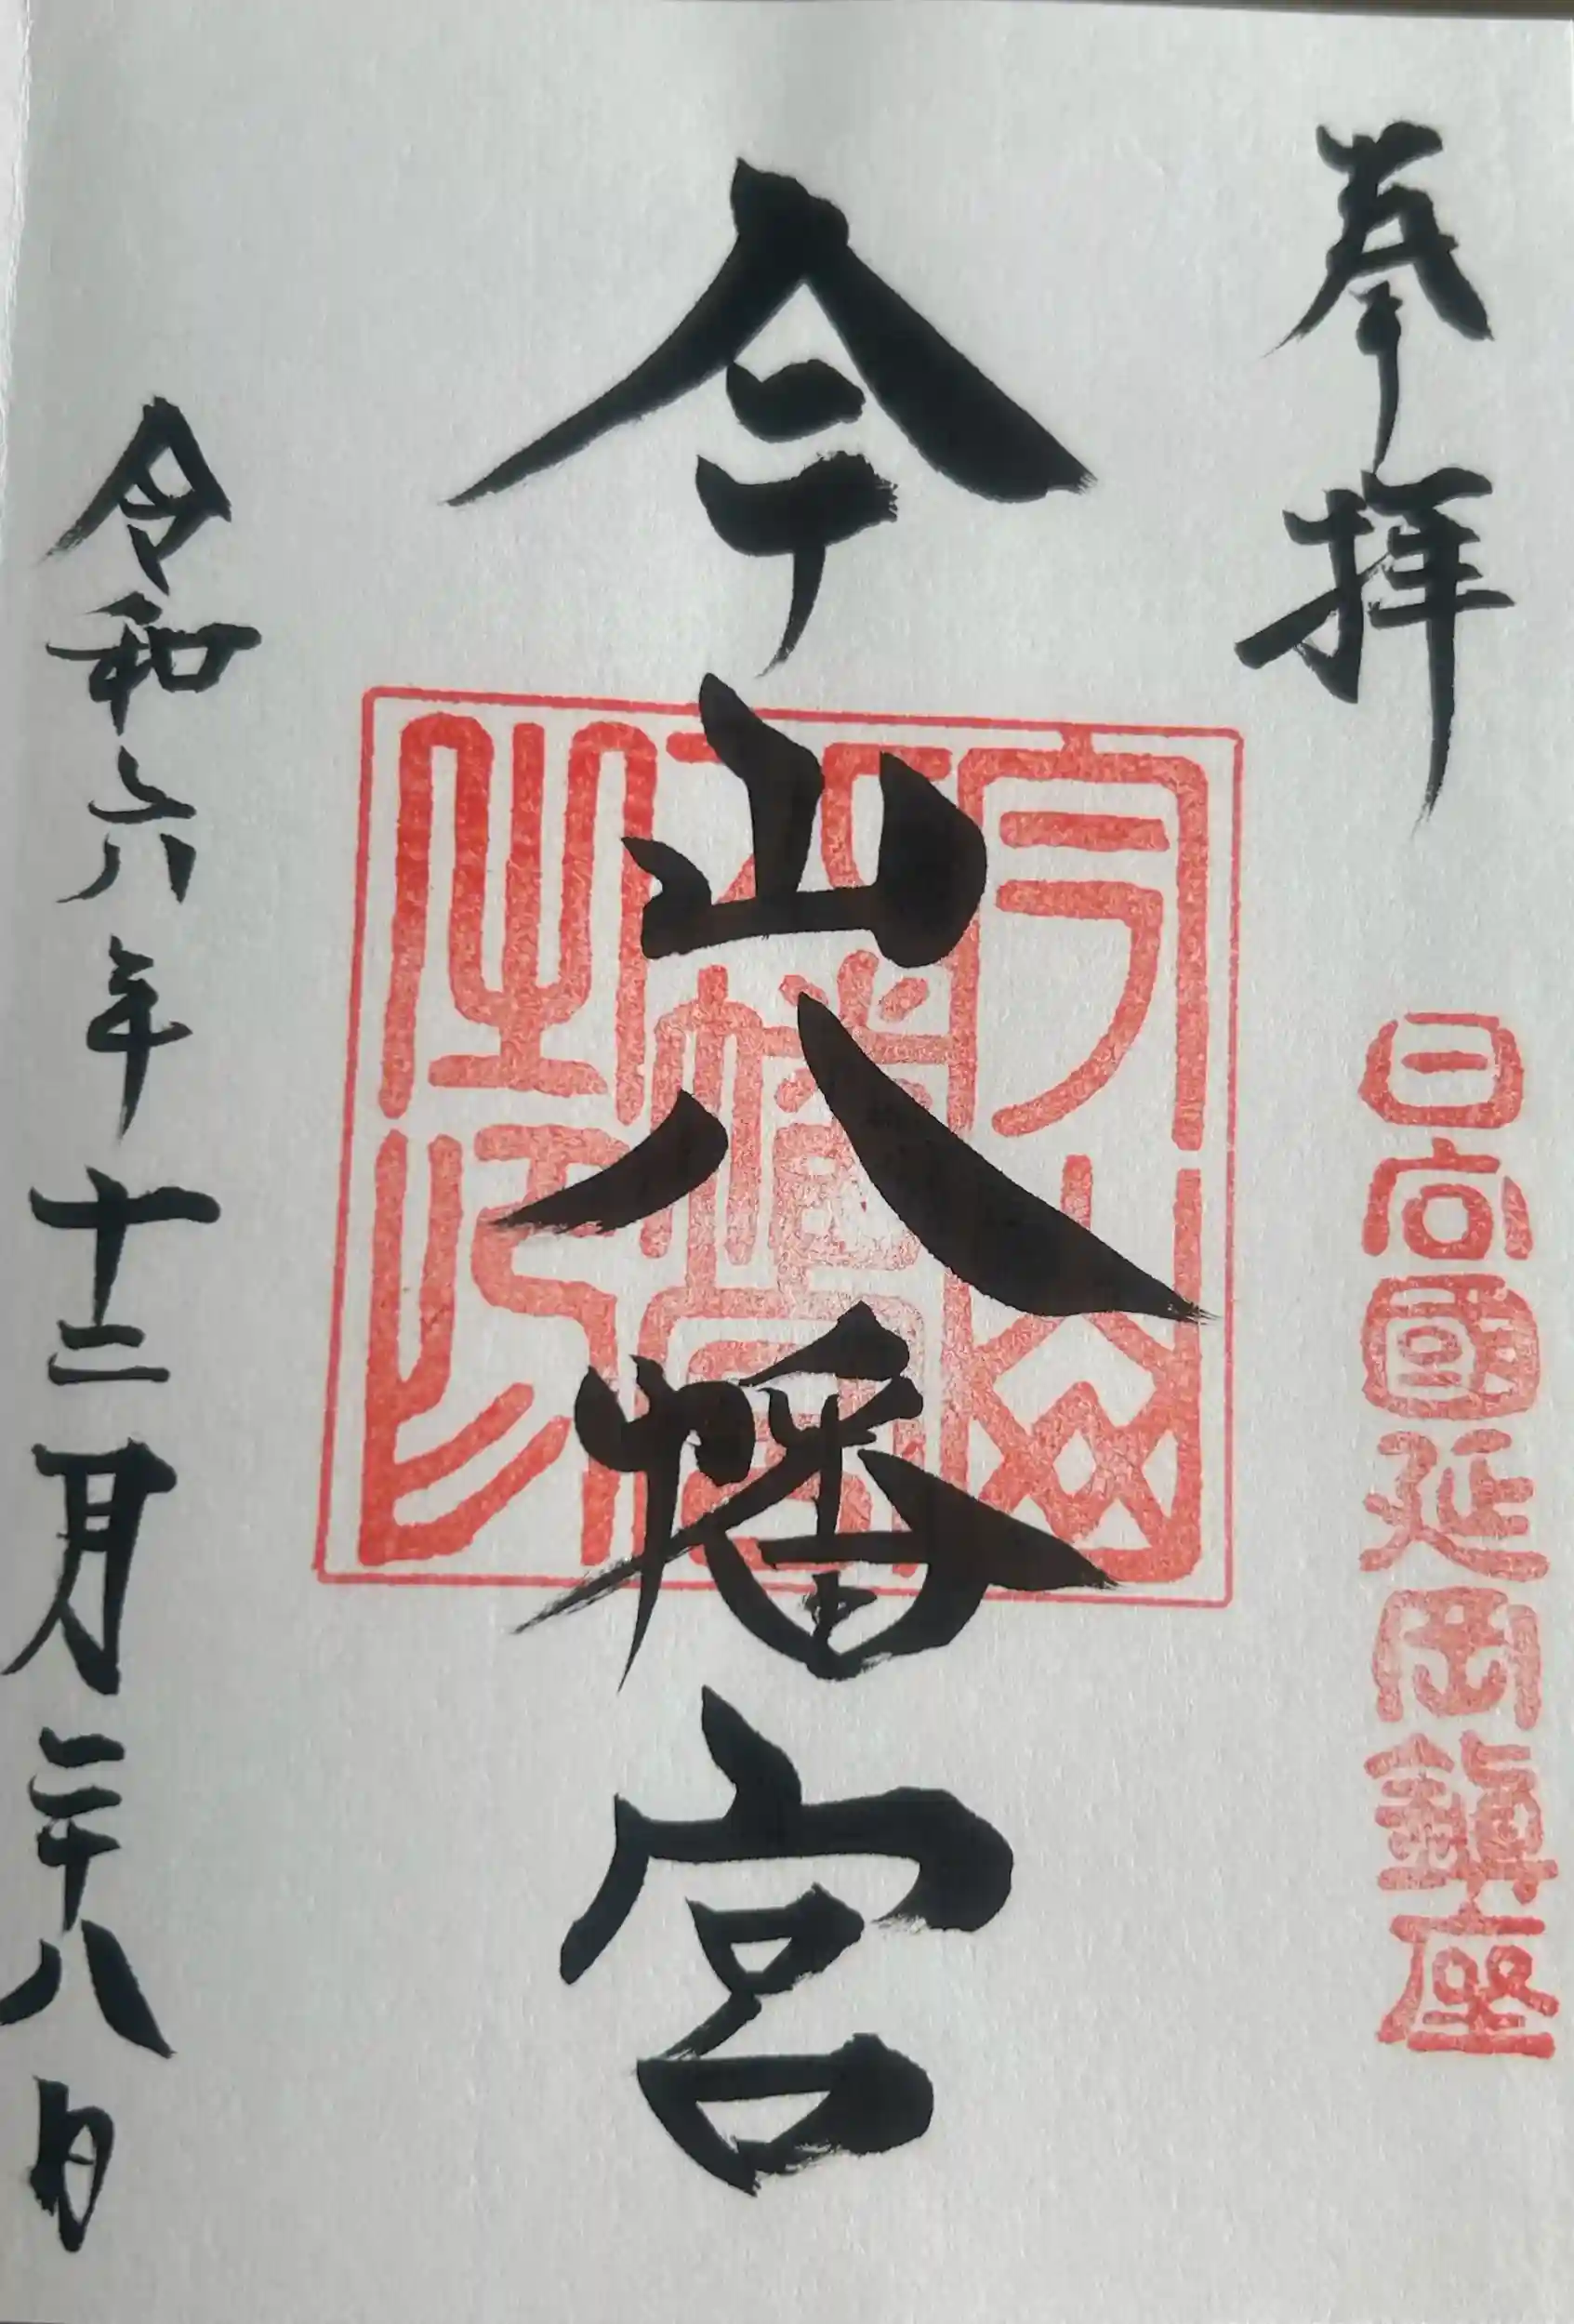 奉拝
日向國延岡鎮座
今山八幡宮
今山八幡宮之印
令和六年十二月二十八日